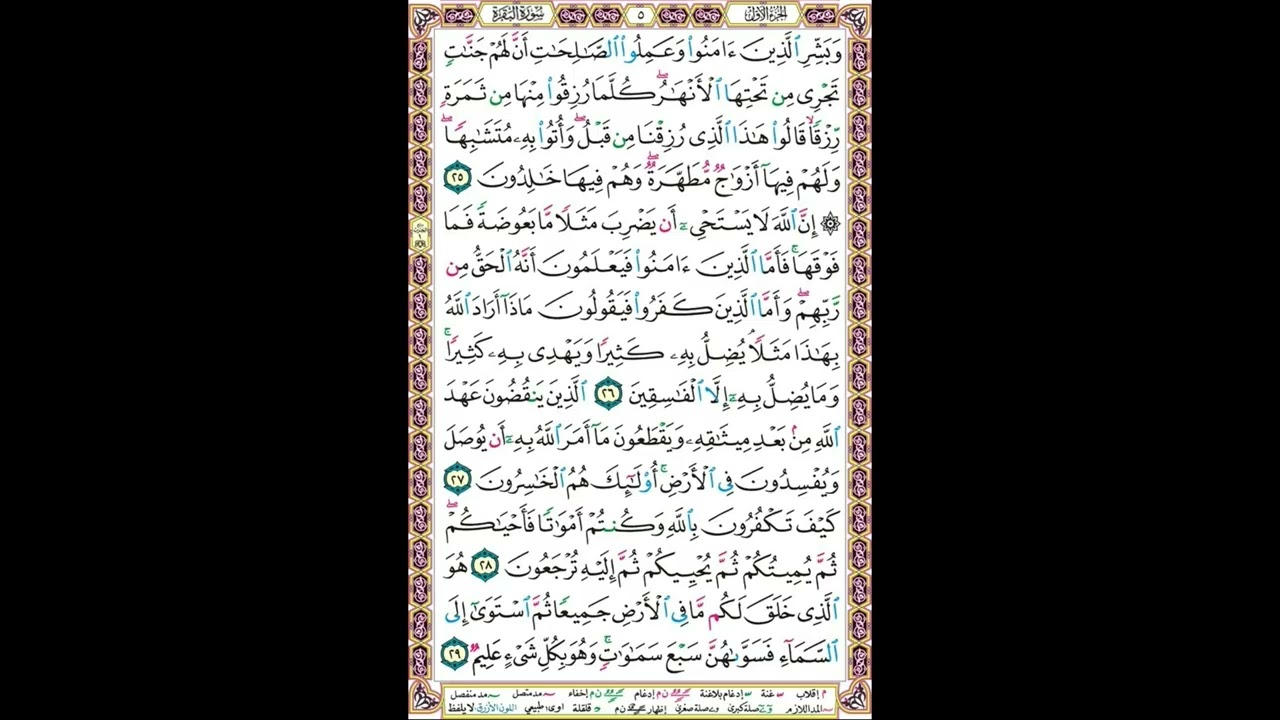 الجزء الأول ٥ سورة البقرة
وَبَشِّرِ ٱلَّذِينَ ءَامَنُوا۟ وَعَمِلُوا۟ ٱلصَّـٰلِحَـٰتِ أَنَّ لَهُمْ جَنَّـٰتٍ
تَجْرِى مِن تَحْتِهَا ٱلْأَنْهَـٰرُ ۖ كُلَّمَا رُزِقُوا۟ مِنْهَا مِن ثَمَرَةٍ
رِّزْقًا ۙ قَالُوا۟ هَـٰذَا ٱلَّذِى رُزِقْنَا مِن قَبْلُ ۖ وَأُتُوا۟ بِهِۦ مُتَشَـٰبِهًا ۖ
وَلَهُمْ فِيهَآ أَزْوَٰجٌ مُّطَهَّرَةٌ ۖ وَهُمْ فِيهَا خَـٰلِدُونَ ٢٥
۞ إِنَّ ٱللَّهَ لَا يَسْتَحْىِۦٓ أَن يَضْرِبَ مَثَلًا مَّا بَعُوضَةً فَمَا
فَوْقَهَا ۚ فَأَمَّا ٱلَّذِينَ ءَامَنُوا۟ فَيَعْلَمُونَ أَنَّهُ ٱلْحَقُّ مِن
رَّبِّهِمْ ۖ وَأَمَّا ٱلَّذِينَ كَفَرُوا۟ فَيَقُولُونَ مَاذَآ أَرَادَ ٱللَّهُ
بِهَـٰذَا مَثَلًا ۘ يُضِلُّ بِهِۦ كَثِيرًا وَيَهْدِى بِهِۦ كَثِيرًا ۚ
وَمَا يُضِلُّ بِهِۦٓ إِلَّا ٱلْفَـٰسِقِينَ ٢٦ ٱلَّذِينَ يَنقُضُونَ عَهْدَ
ٱللَّهِ مِنۢ بَعْدِ مِيثَـٰقِهِۦ وَيَقْطَعُونَ مَآ أَمَرَ ٱللَّهُ بِهِۦٓ أَن يُوصَلَ
وَيُفْسِدُونَ فِى ٱلْأَرْضِ ۚ أُو۟لَـٰٓئِكَ هُمُ ٱلْخَـٰسِرُونَ ٢٧
كَيْفَ تَكْفُرُونَ بِٱللَّهِ وَكُنتُمْ أَمْوَٰتًا فَأَحْيَـٰكُمْ ۖ
ثُمَّ يُمِيتُكُمْ ثُمَّ يُحْيِيكُمْ ثُمَّ إِلَيْهِ تُرْجَعُونَ ٢٨ هُوَ
ٱلَّذِى خَلَقَ لَكُم مَّا فِى ٱلْأَرْضِ جَمِيعًا ثُمَّ ٱسْتَوَىٰٓ إِلَى
ٱلسَّمَآءِ فَسَوَّىٰهُنَّ سَبْعَ سَمَـٰوَٰتٍ ۚ وَهُوَ بِكُلِّ شَىْءٍ عَلِيمٌ ٢٩
م إقلاب غنة إدغام بلاغنة ن م إدغام ن م إخفاء مد متصل مد منفصل
المد اللازم صلة كبرى صلة صغرى إظهار ن م قلقلة اوى: طبيعي اللون الأزرق: لا يلفظ